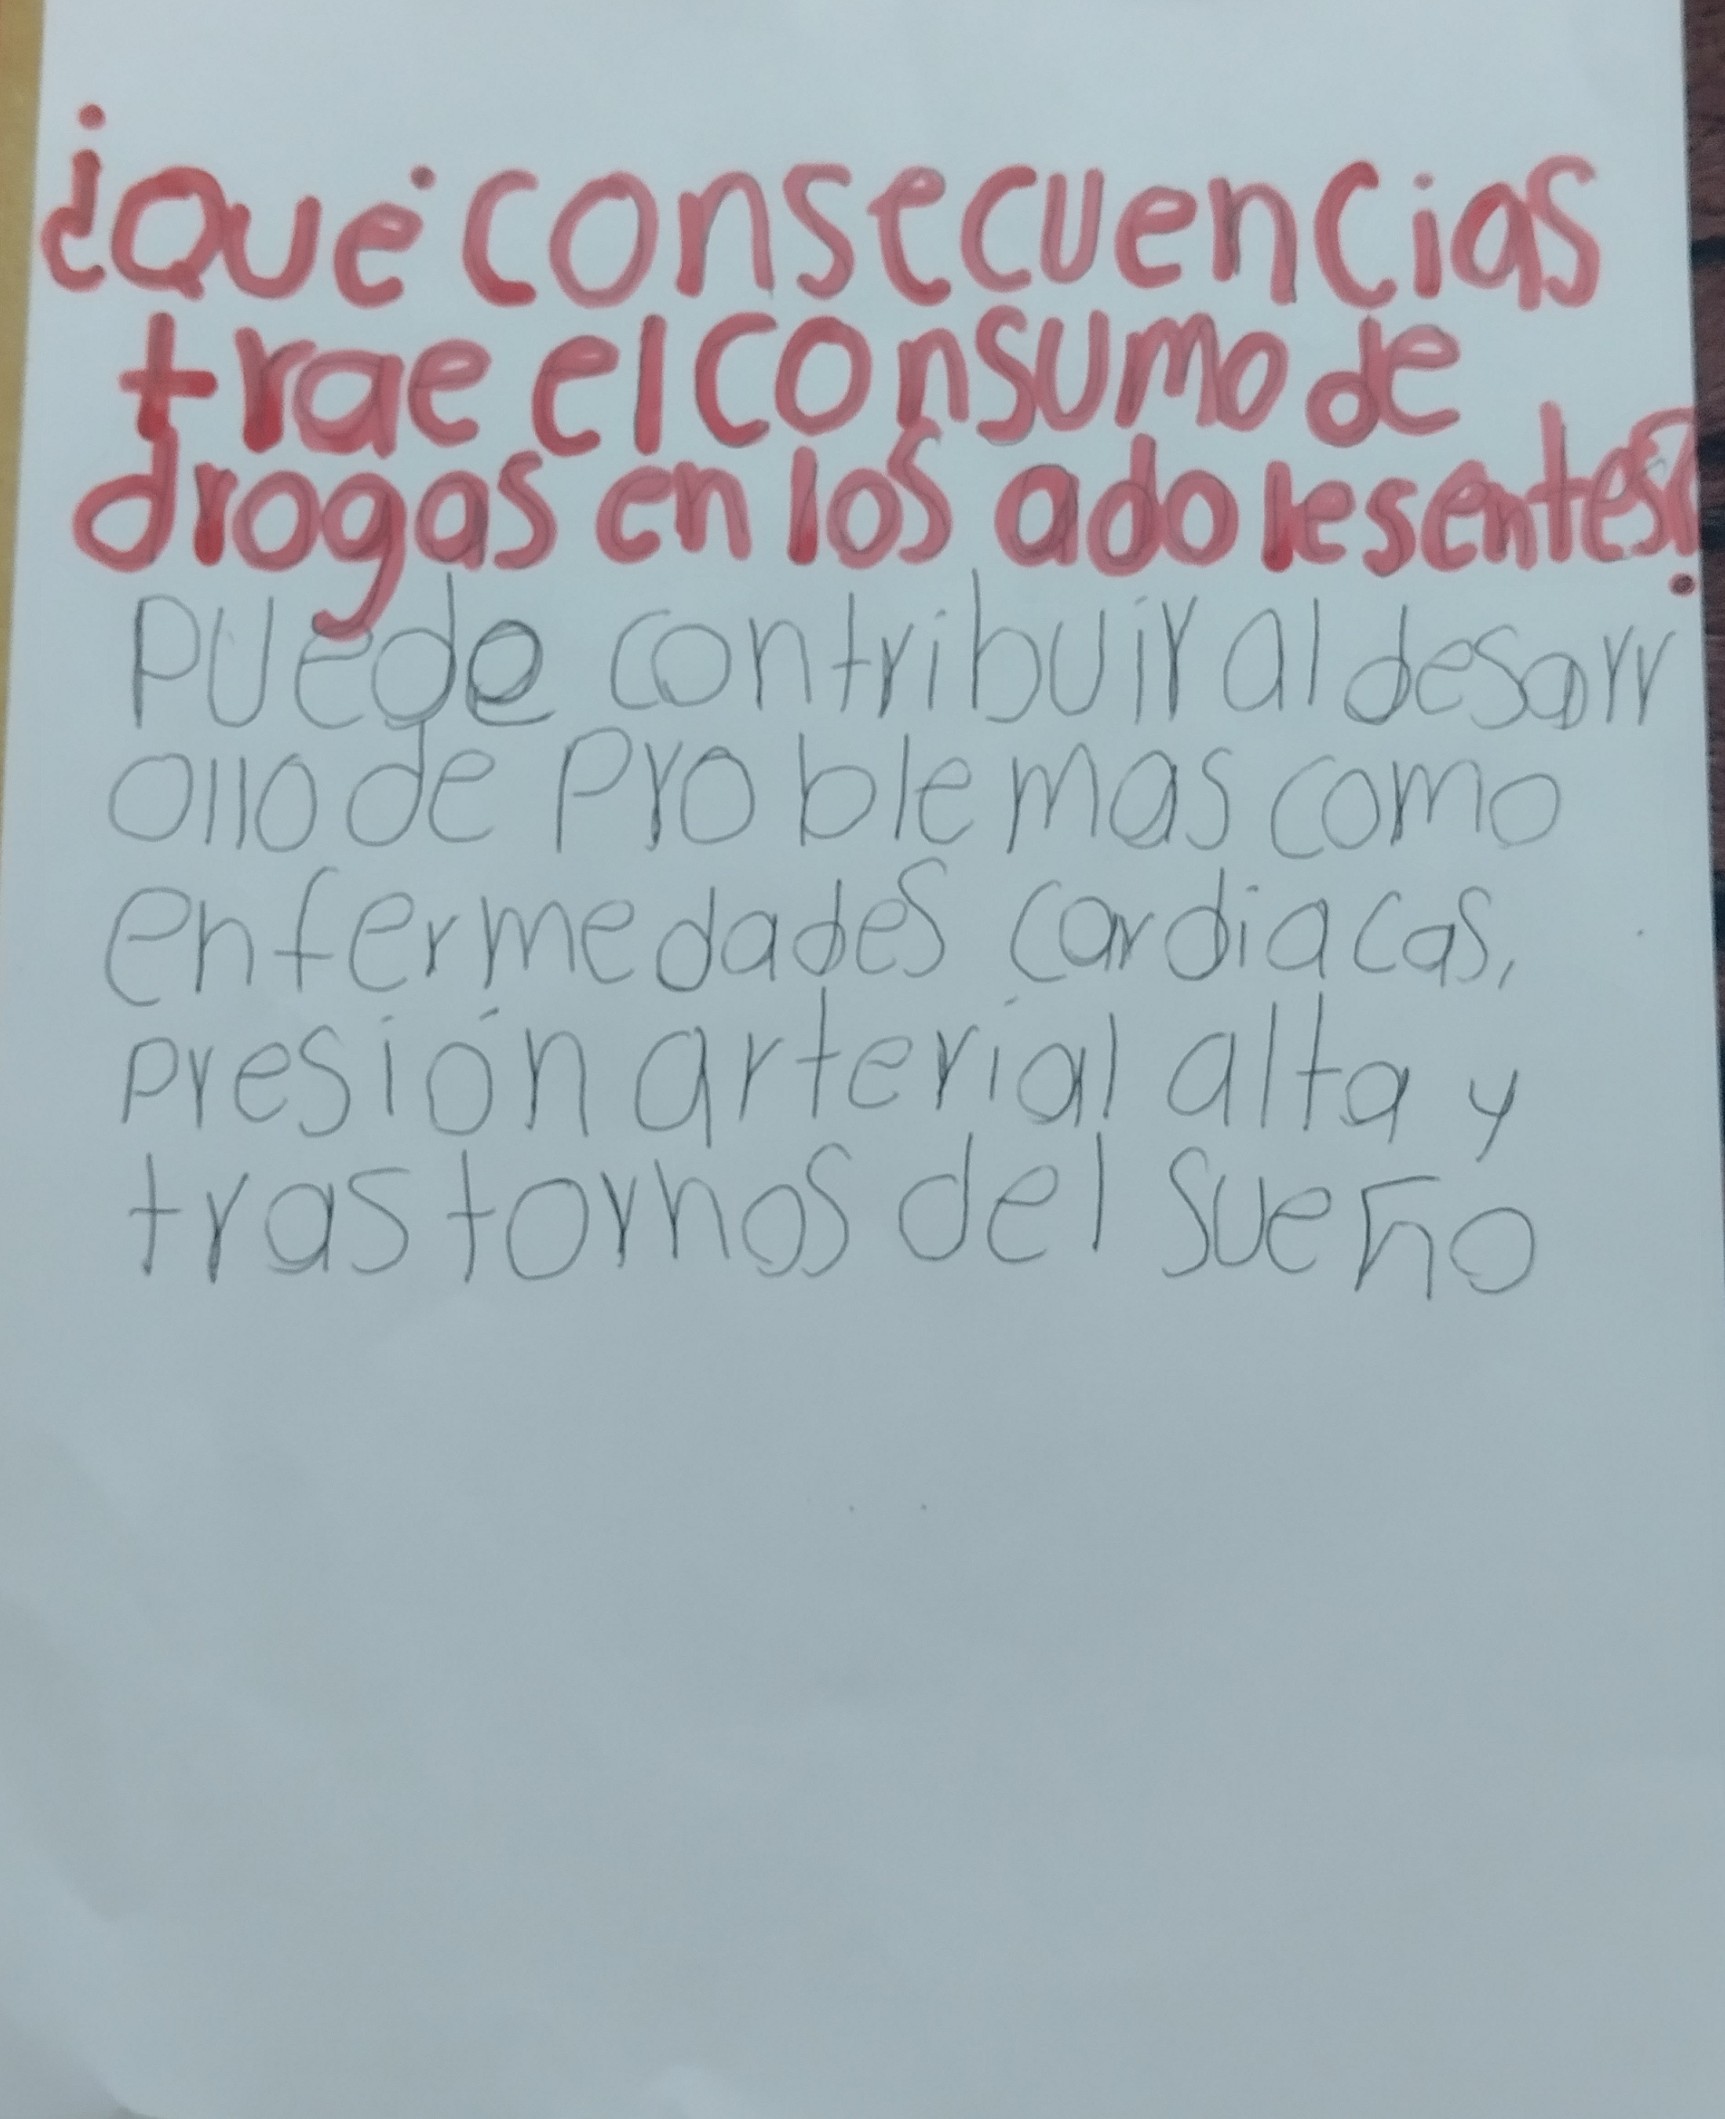 ¿Qué consecuencias
trae el consumo de
drogas en los adolesentes?
puede contribuir al desarr
ollo de problemas como
enfermedades cardiacas,
presión arterial alta y
trastornos del sueño